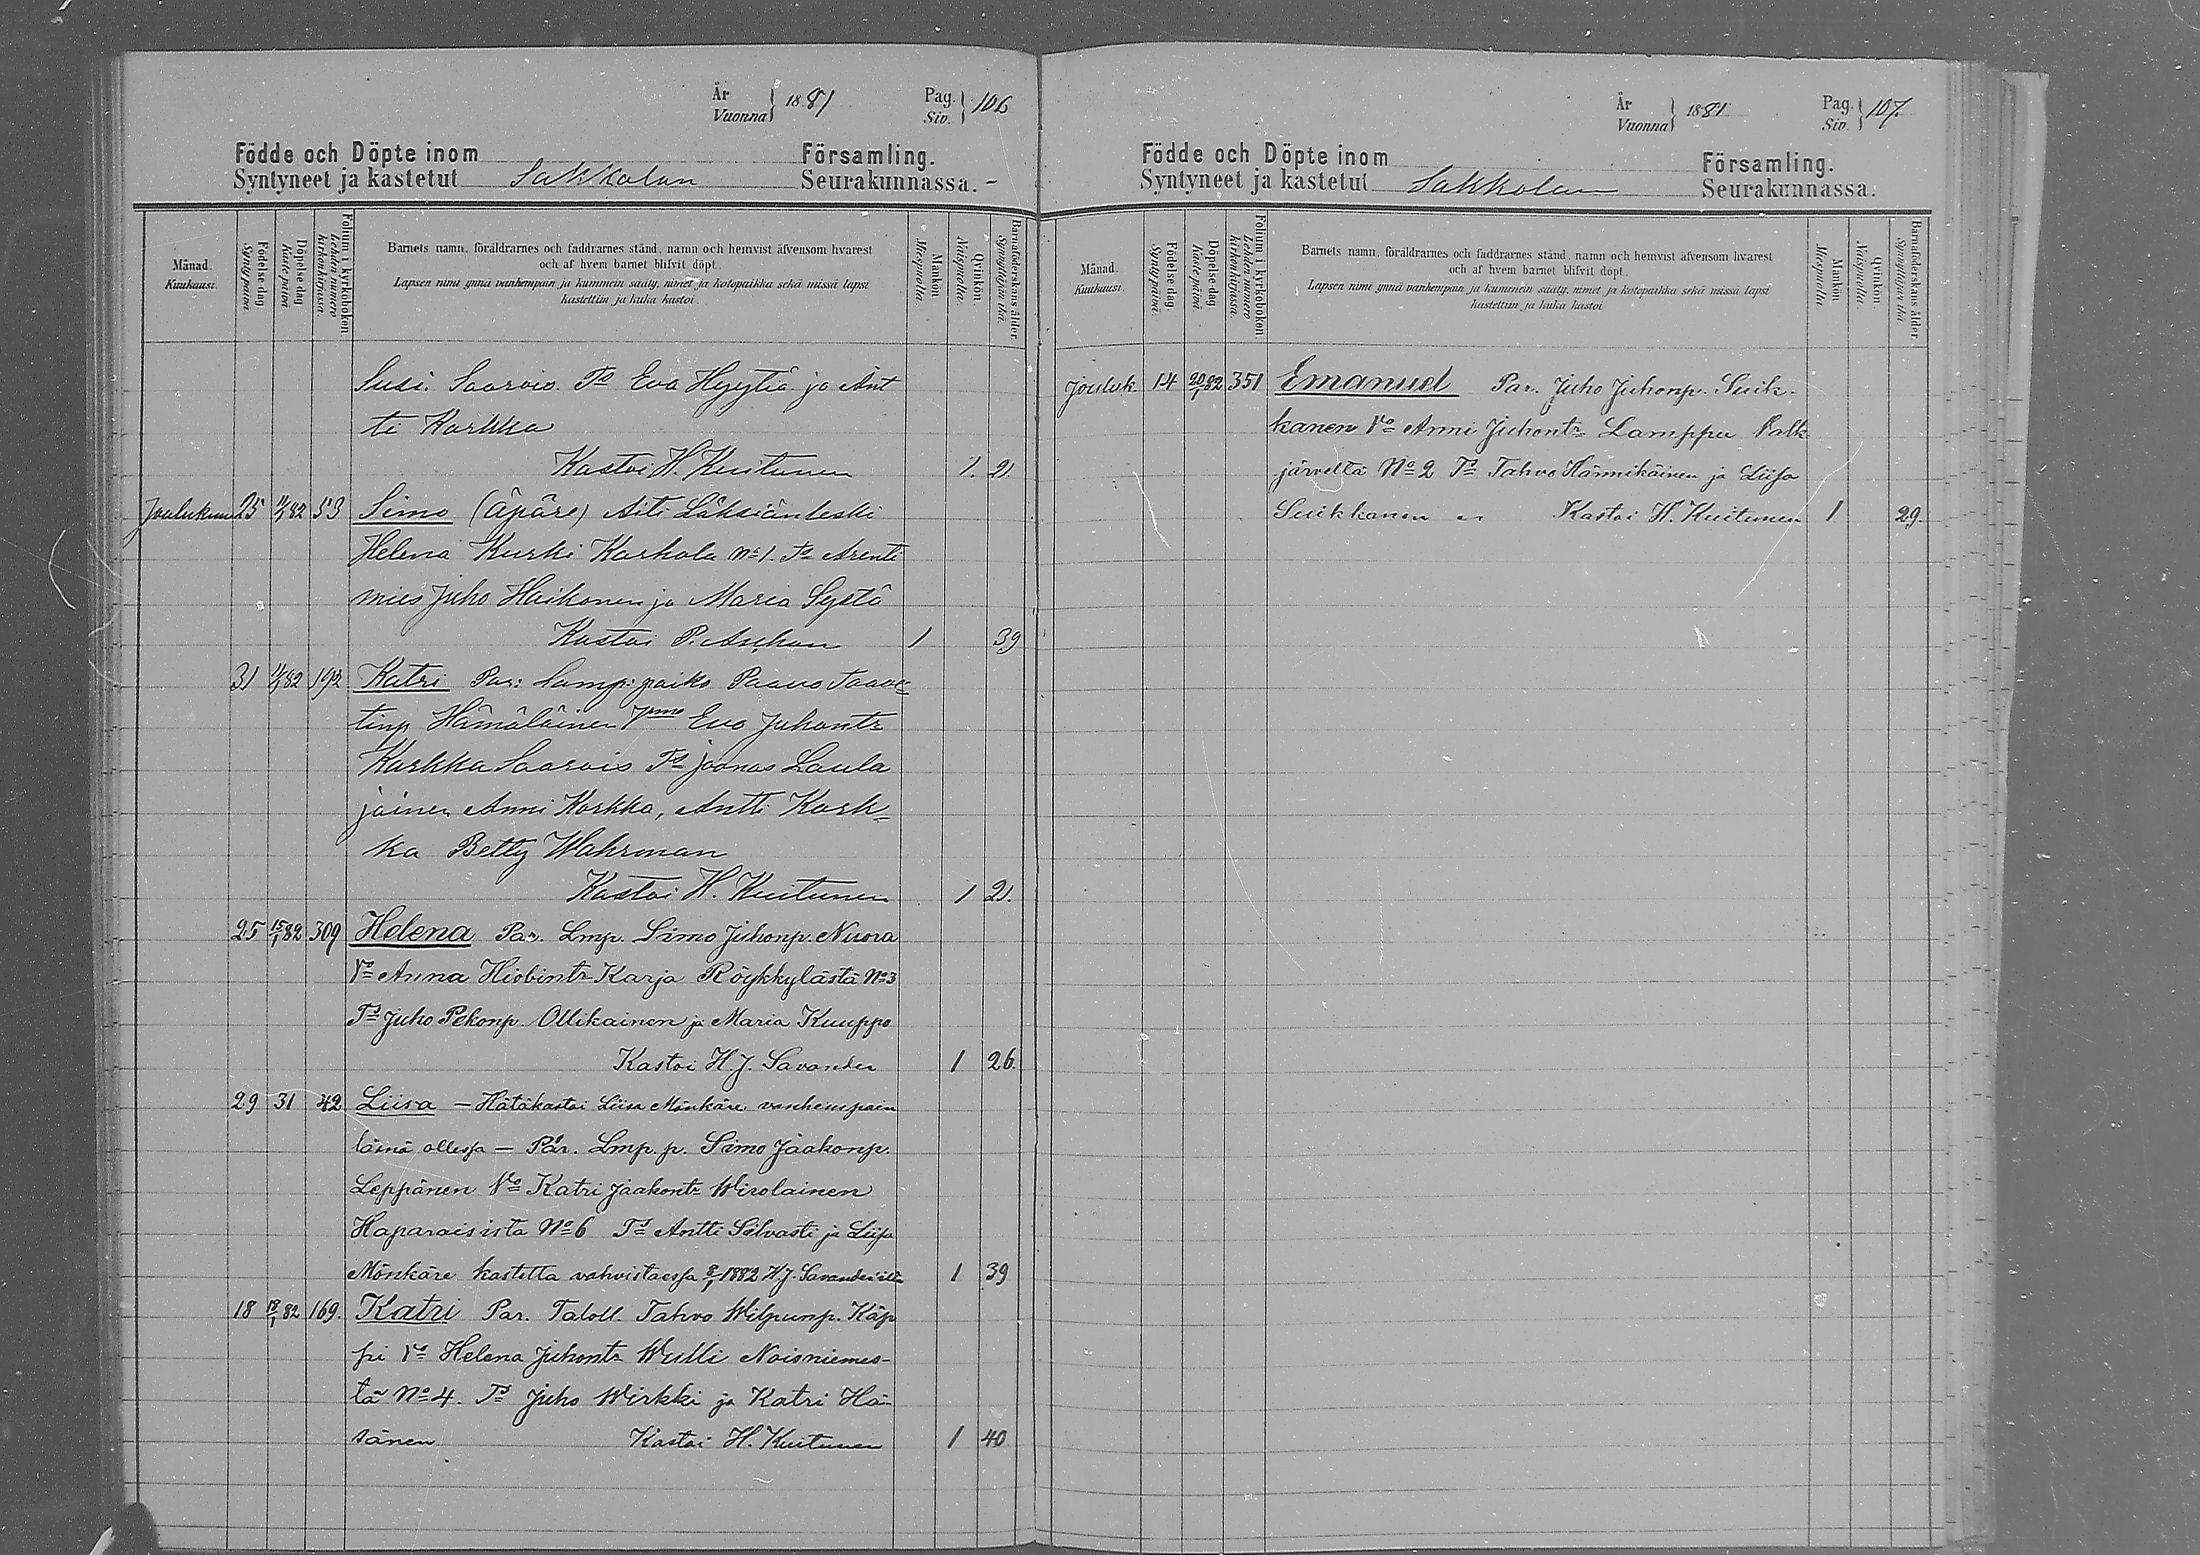 År
Vuonna } 1881
Pag.
Siv. } 106
Födde och Döpte inom Församling.
Syntyneet ja kastetut Sakkolan Seurakunnassa.
Månad.
Kuukausi.
Födelse-dag.
Syntypäivä.
Döpelse-dag
Kastepäivä
Folium i kyrkoboken.
Lehden numero kirkonkirjassa.
Barnets namn, föräldrarnes och faddrarnes stånd, namn och hemvist äfvensom hvarest
och af hvem barnet blifvit döpt.
Lapsen nimi ynnä vanhempain ja kummein sääty, nimet ja kotopaikka sekä missä lapsi
kastettiin ja kuka kastoi.
Mankön.
Miespuolia.
Qvinkön.
Naispuolia.
Barnaföderskans ålder.
Synnyttäjän ikä
Susi. Saarois. Td Eva Hyytiä ja Ant
ti Karkka
Kastoi H. Kuitunen 1. 21.
Joulukuu 25 11/1 82 53 Simo (Äpäre) Äiti Läksiänleski
Helena Kurki Karhola No 1. Td Arenti
mies Juho Haikonen ja Maria Systä
Kastoi P. 1 39
31 11/1 82 192 Katri Par: Lamp:poika Paavo Taave=
tinp Hämäläinen Vmo Eva Juhontr
Karkka Saarois Td Joonas Laula
jainen Anni Karkka, Antti Kark=
ka Betty Wahrman
Kastoi H. Kuitunen 1 21.
25 15/1 82 309 Helena Par. Lmp. Simo Juhonp. Nuora
Vo Anna Hiobintr Karja Röykkylästä No 3
Td Juho Pekonp. Ollikainen ja Maria Kuuppo
Kastoi H. J. Savander 1 26.
29 31 42 Liisa – Hätäkastoi Liisa Mönkäre vanhempain
läsnä ollessa – Par. Lmp. p. Simo Jaakonp.
Leppänen Vo Katri Jaakontr Wirolainen
Haparaisista No 6 Td Antti Silvasti ja Liisa
Mönkäre kastetta vahvistaessa 8/1 1882 H. J. Savander'ilta 1 39
18 18/1 82 169. Katri Par. Taloll. Tahvo Wilpunp. Käp
pi Vo Helena Juhontr Wulli Noisniemes-
tä No 4. Td Juho Wirkki ja Katri Hä-
sänen Kastoi H. Kuitunen 1 40
År
Vuonna } 1881
Pag.
Siv. } 107.
Födde och Döpte inom Församling.
Syntyneet ja kastetut Sakkolan Seurakunnassa.
Månad.
Kuukausi.
Födelse-dag.
Syntypäivä.
Döpelse-dag
Kastepäivä
Folium i kyrkoboken.
Lehden numero kirkonkirjassa.
Barnets namn, föräldrarnes och faddrarnes stånd, namn och hemvist äfvensom hvarest
och af hvem barnet blifvit döpt.
Lapsen nimi ynnä vanhempain ja kummein sääty, nimet ja kotopaikka sekä missä lapsi
kastettiin ja kuka kastoi
Mankön.
Miespuolia.
Qvinkön.
Naispuolia.
Barnaföderskans ålder.
Synnyttäjän ikä
Jouluk. 14 20/1 82 351 Emanuel Par. Juho Juhonp. Suik-
kanen Vo Anni Juhontr Lamppu Valk
järveltä No 2 Td Tahvo Hännikäinen ja Liisa
Suikkanen Kastoi H. Kuitunen 1 29.